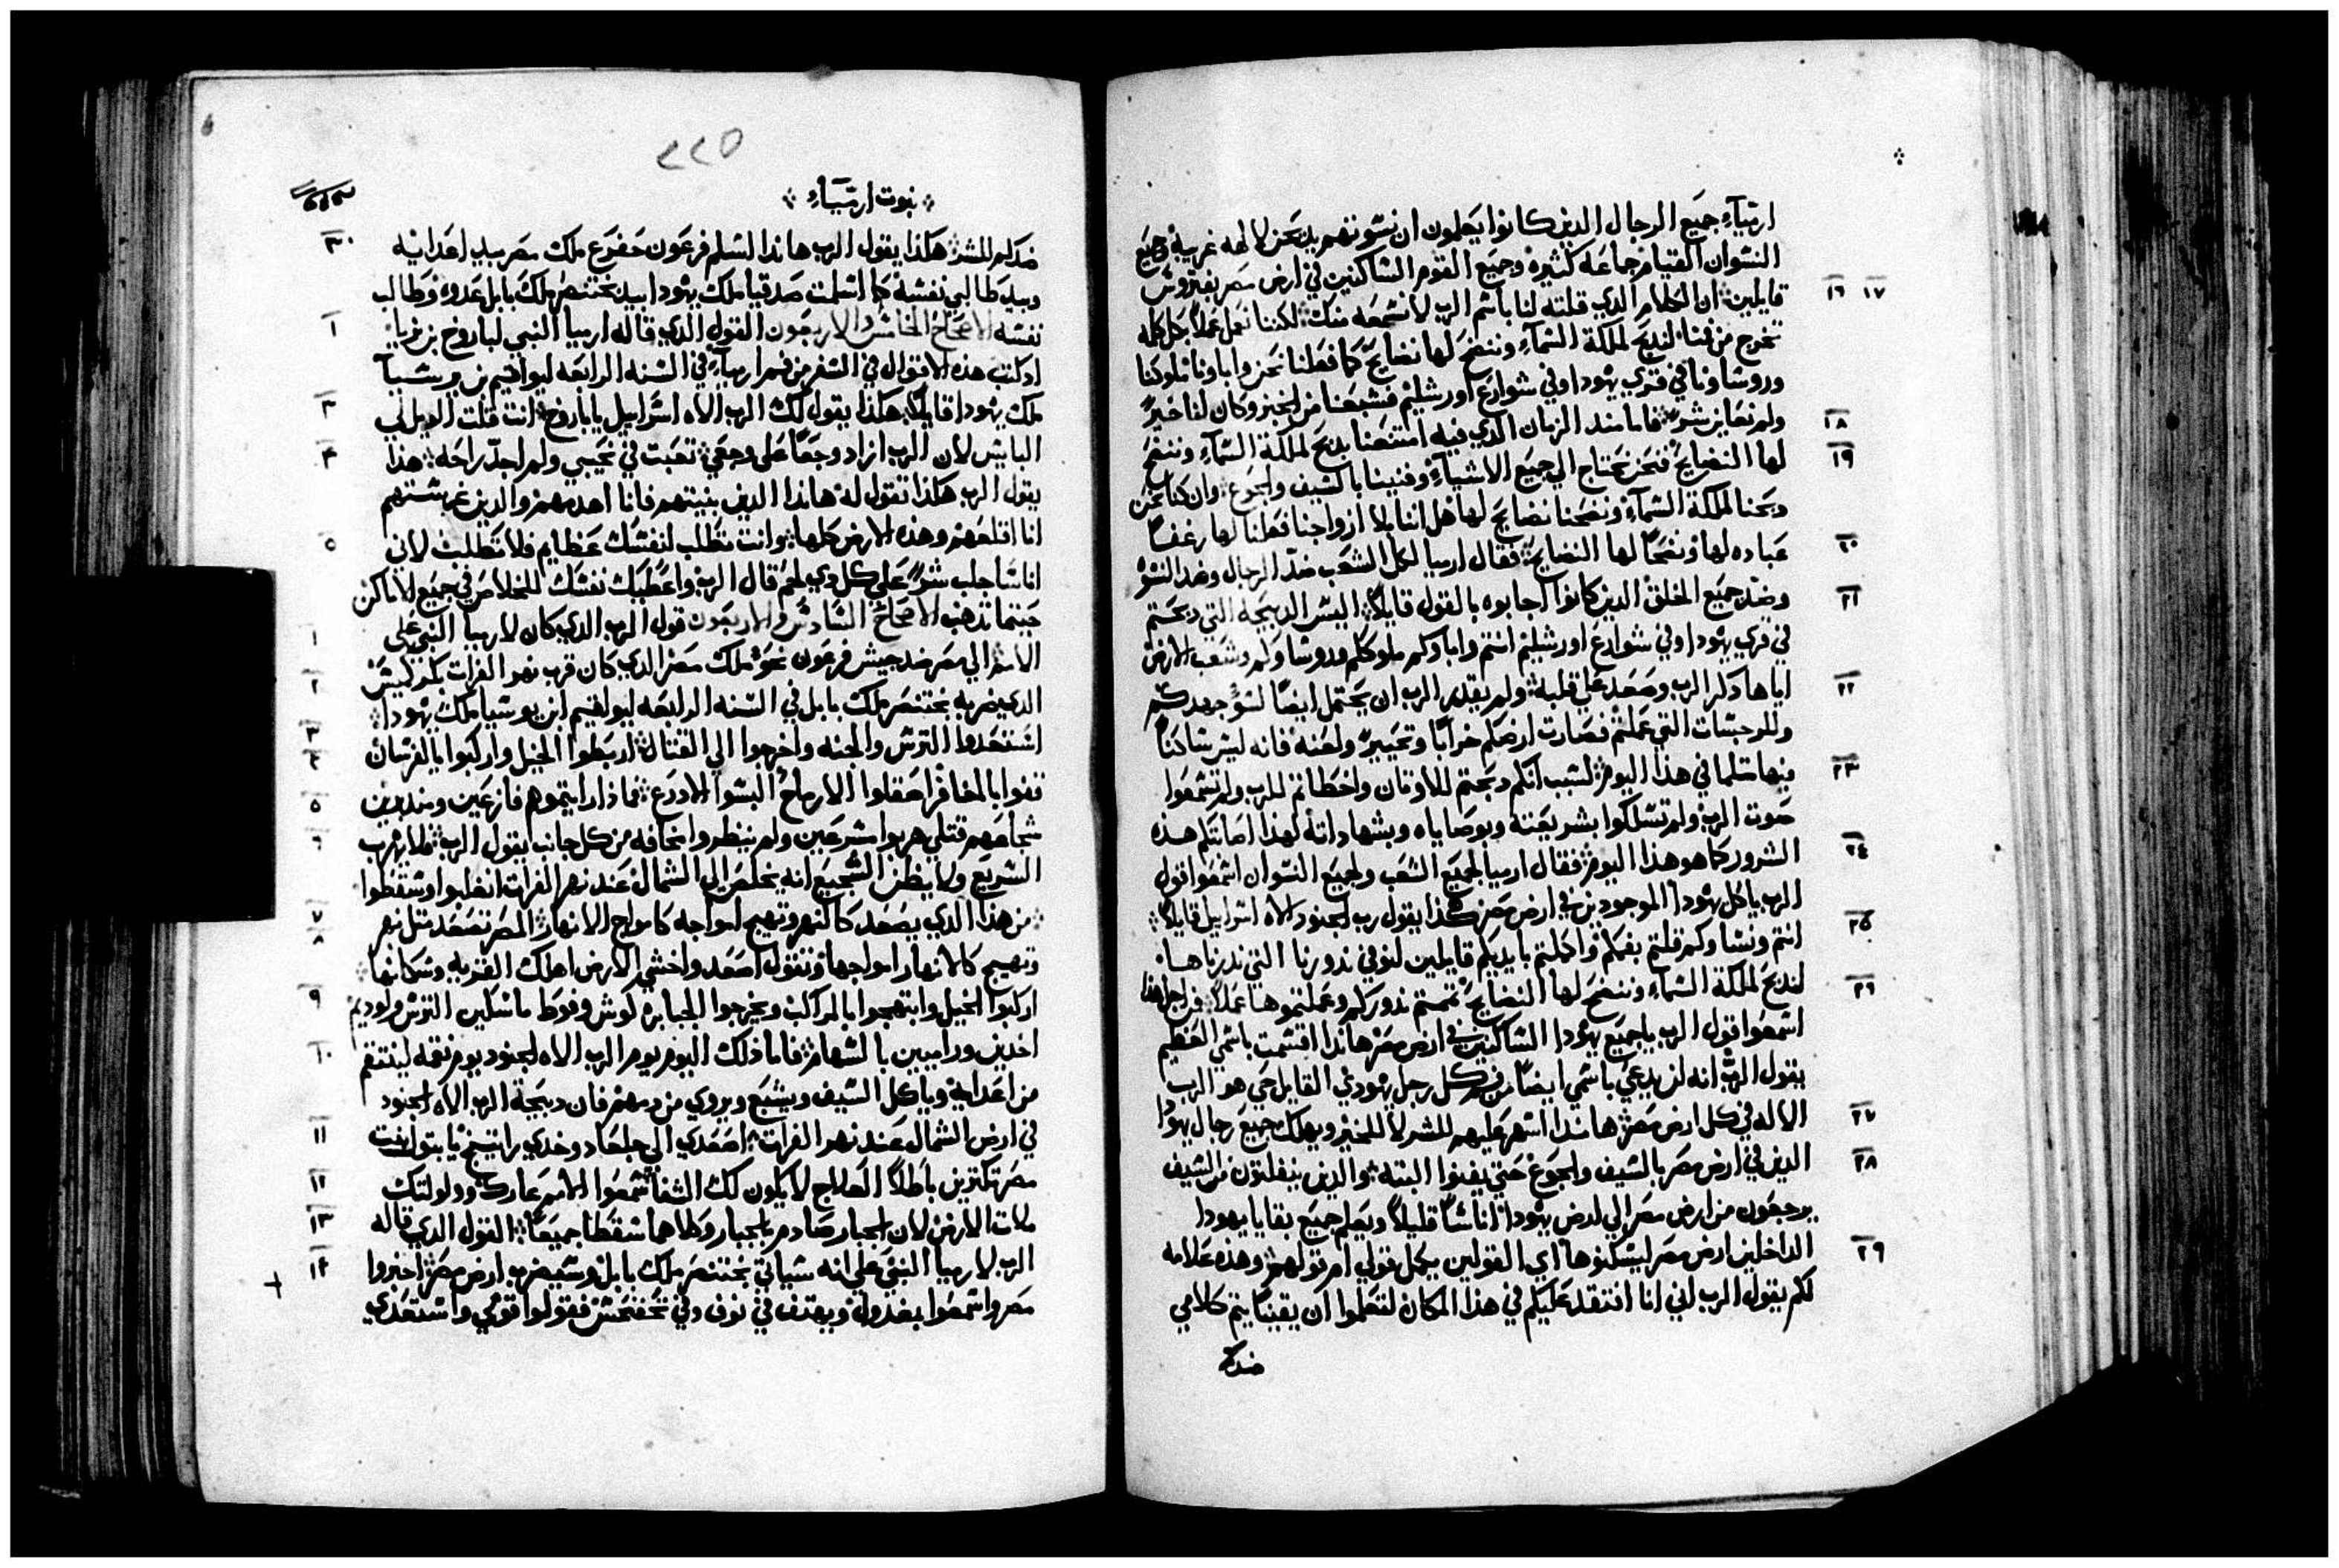 ارميآء جميع الرجال الدين كانوا يعلمون ان نسوتهم يدبحن لالهه غريبة وجميع
النسوان القيام جماعه كثيره وجميع القوم الساكنين في ارض مصر بفتروس
١٦ ١٧ قايلين ان الكلام الدي قلته لنا باسم الرب لا نسمعه منك لكننا نعمل عملاً كل كلمه
تخرج من فمنا لندبح لملكة السمآء وننضح لها نضايح كما فعلنا نحن واباونا ملوكنا
وروساونا في قري يهودا وفي شوارع اورشليم فشبعنا من الخبز وكان لنا خيرً
١٨ ولم نعاين شرً فاما مند الزمان الدي فيه امتنعنا بدبح لملكة السمآء وننضح
١٩ لها النضايح فنحن نحتاج الي جميع الاشيآء وفنينا بالسيف والجوع وان كنا نحن
دبحنا لملكة السمآء ونضحنا نضايح لها هل اننا بلا ازواجنا فعلنا لها رغفاً
٢٠ عباده لها ونضحاً لها النضايح فقال ارميا لكل الشعب ضدّ الرجال وضد النسو
٢١ وضد جميع الخلق الدين كانوا اجابوه بالقول قايلاً اليس الدبيحة التي دبحتم
في قري يهودا وفي شوارع اورشليم انتم واباوكم ملوككم وروساوكم وشعب الارض
٢٢ اياها دكر الرب وصعد علي قلبه ولم يقدر الرب ان يحتمل ايضاً لسو جهدكم
وللرجسات التي عملتم فصارت ارضكم خراباً وتحييرً ولعنه فانه ليس ساكناً
٢٣ فيها متلما في هدا اليوم لسبب انكم دبحتم للاوتان واخطاتم للرب ولم تسمعوا
صوت الرب ولم تسلكوا بشريعته وبوصاياه وبشهاداته لهدا اصابتكم هده
٢٤ الشرور كما هو هدا اليوم فقال ارميا لجميع الشعب ولجميع النسوان اسمعوا قول
الرب يا كل يهودا الموجودين في ارض مصر هكذا يقول رب الجنود الاه اسراييل قايلاً
٢٥ انتم ونساوكم قلتم بفمكم واكملتم بايديكم قايلين لنوفي ندورنا التي ندرناها
لندبح لملكة السمآء وننضح لها النضايح تممتم ندوركم وعملتموها عملاً فمن اجل هدا
٢٦ اسمعوا قول الرب يا جميع يهودا الساكنين في ارض مصر هاندا اقسمت باسمي العظيم
يقول الرب انه لن يدعي باسمي ايضاً من فم كل رجل يهودي القايل حي هو الرب
٢٧ الاله في كل ارض مصر هاندا اسهر عليهم للشر لا للخير ويهلك جميع رجال يهودا
٢٨ الدين في ارض مصر بالسيف والجوع حتي يفنوا البته والدين ينفلتون من السيف
يرجعون من ارض مصر الي ارض يهودا اناساً قليلاً ويعلم جميع بقايا يهودا
٢٩ الداخلين ارض مصر ليسكنوها اي القولين يكمل قولي ام قولهم وهده علامه
لكم يقول الرب اني انا افتقد عليكم في هدا المكان لتعلموا ان يقيناً يتم كلامي
ضدكم
٢٢٥
نبوت ارميآء
٣٠ ضدكم للشر هكذا يقول الرب هاندا اسلم فرعون حفرع ملك مصر بيد اعدايه
وبيد طالبي نفسه كما اسلمت صدقيا ملك يهودا بيد بختنصر ملك بابل عدوه وطالب
١ نفسه الاصحاح الخامس والاربعون القول الدي قاله ارميا النبي لباروخ بن نريا
اد كتب هده الاقوال في السفر من فم ارميآء في السنه الرابعه ليواقيم بن يوسيآ
٣ ملك يهودا قايلاً هكدا يقول لك الرب الاه اسراييل يا باروخ انت قلت الويل لي
٤ البايس لان الرب ازاد وجعاً علي وجعي تعبت في نحيبي ولم اجد راحه هدا
يقول الرب هكدا تقول له هاندا الدين بنيتهم فانا اهدمهم والدين غرستهم
٥ انا اقلعهم وهده الارض كلها وانت تطلب لنفسك عظايم فلا تطلب لاني
انا ساجلب شرً علي كل دي لحم قال الرب واعطيك نفسك للخلاص في جميع الاماكن
١ حيتما تدهب الاصحاح السادس والاربعون قول الرب الدي كان لارميا النبي علي
الامم الي مصر ضد جيش فرعون نخو ملك مصر الدي كان قرب نهر الفرات بكركميش
٢ الدي ضربه بختنصر ملك بابل في السنه الرابعه ليواقيم ابن يوسيا ملك يهودا
٣ استعدوا الترس والجنه واخرجوا الي القتال
٤ اربطوا الخيل واركبوا يا الفرسان
قفوا بالمخافر اصقلوا الارماح البسوا الادرع
٥ فما ذا رايتموهم فازعين ومندبرين
شجاعهم قتلي هربوا مسرعين ولم ينظروا مخافه من كل جانب يقول الرب
٦ فلا يهرب
السريع ولا يظن الشجيع انه يخلص الي الشمال عند نهر الفرات انغلبوا وسقطوا
٧ من هدا الدي يصعد كالنهر وتهيج امواجه كامواج الانهار
٨ المصر تصعد متل نهر
وتهيج كالانهار امواجها وتقول اصعد واغشي الارض اهلك القريه وسكانها
٩ اركبوا الخيل وابتهجوا بالمراكب ويخرجوا الجبابره كوش وفوط ماسكين الترس ولوديم
١٠ اخدين وراميين بالسهام فاما ذلك اليوم يوم الرب الاه الجنود يوم نقمه لينتقم
من اعدايه وياكل السيف ويشبع ويروي من دمهم فان دبيحة الرب الاه الجنود
١١ في ارض الشمال عند نهر الفرات اصعدي الي جلعاد وخدي راتينج يا بتول بنت
١٢ مصر تكترين باطلاً العلاج لا يكون لك الشفا سمعوا الامم عارك وولولتك
١٣ ملات الارض لان الجبار صادم بالجبار وكلاهما سقطا جميعاً القول الدي قاله
١٤ الرب لارميا النبي علي انه سياتي بختنصر ملك بابل وسيضرب ارض مصر اخبروا
مصر واسمعوا بمغدول ويهتف في نوف وفي تحفنحس فقولوا قومي واستعدي